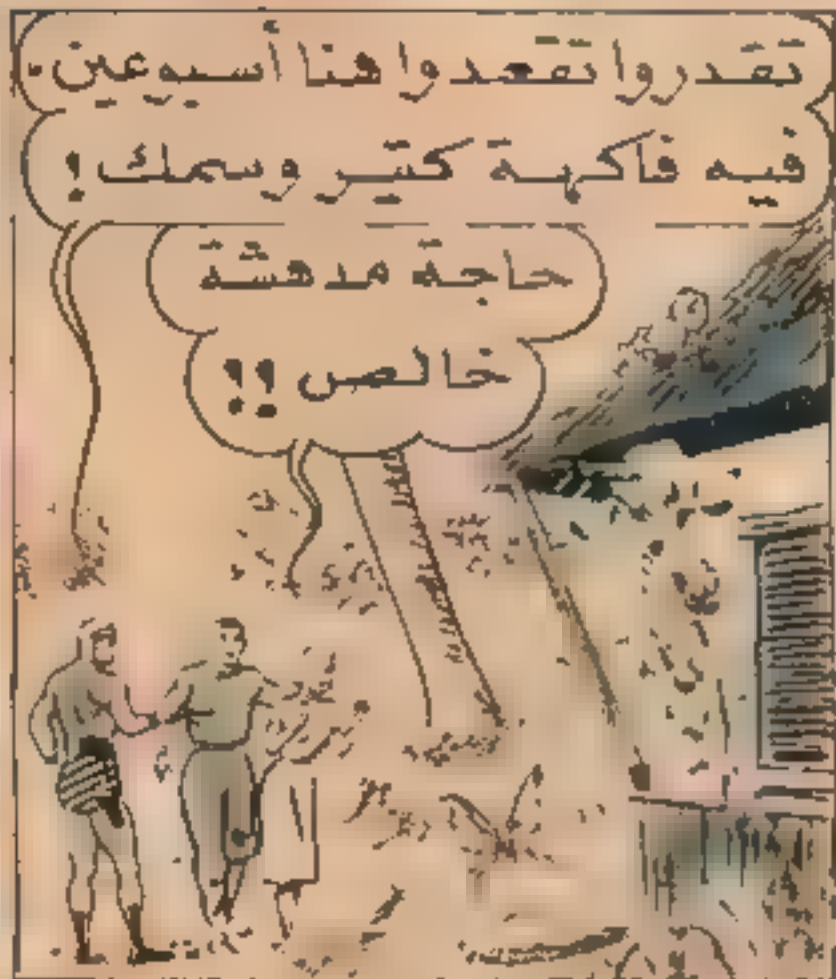 تقدروا تقعدوا هنا أسبوعين.
فيه فاكهة كتير وسمك!
حاجة مدهشة
خالص!!